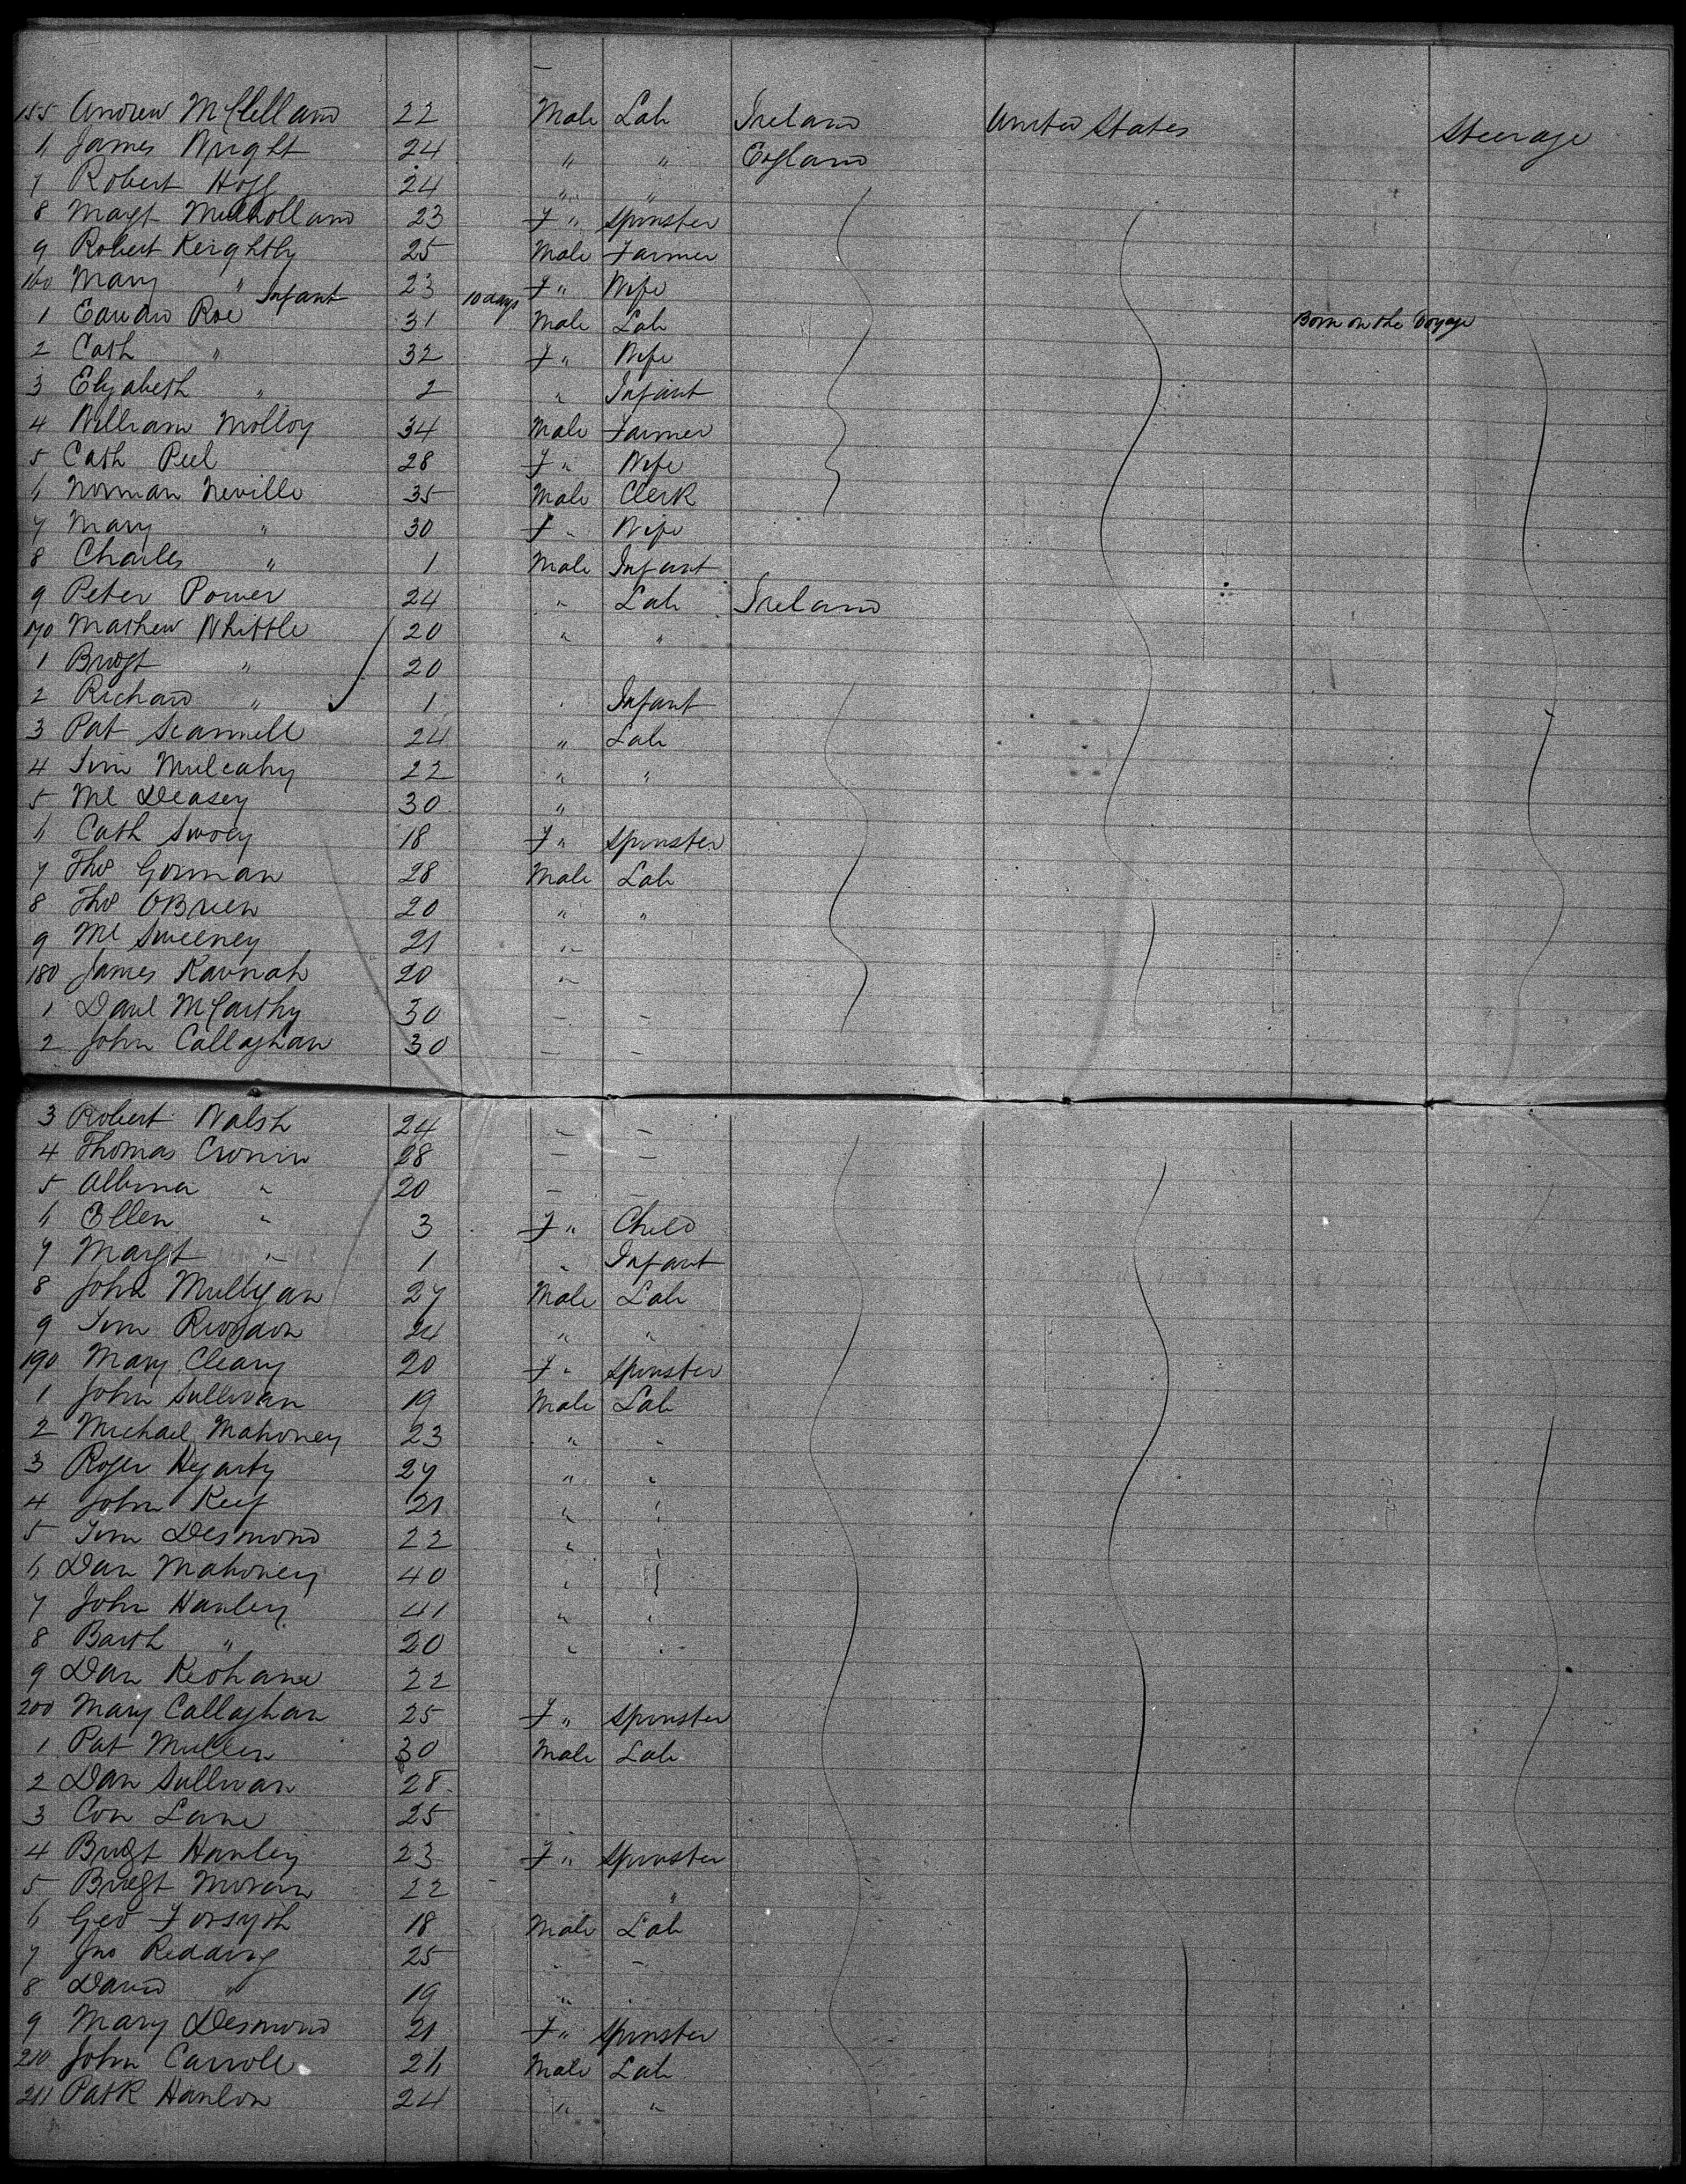 155 Andrew McClelland 22 Male Lab Ireland United States Steerage
6 James Wright 24 " " England
7 Robert Hogg 24 " "
8 Margt Mulholland 23 F " Spinster
9 Robert Keightly 25 Male Farmer
160 Mary " 23 F " Wife
Infant 10 days Born on the Voyage
1 Edward Roe 31 Male Lab
2 Cath " 32 F " Wife
3 Elizabeth " 2 " Infant
4 William Molloy 34 Male Farmer
5 Cath Peel 28 F " Wife
6 Norman Neville 35 Male Clerk
7 Mary " 30 F " Wife
8 Charles " 1 Male Infant
9 Peter Power 24 " Lab Ireland
170 Mathew Whittle 20 " "
1 Bridgt " 20
2 Richard " 1 " Infant
3 Pat Scannell 24 " Lab
4 Tim Mulcahy 22 " "
5 Ml Deasey 30 "
6 Cath 18 F " Spinster
7 Thos Gorman 28 Male Lab
8 Thos OBrien 20 " "
9 Ml Sweeney 21 "
180 James Kavnah 20 "
1 Danl McCarthy 30 - -
2 John Callaghan 30 - -
3 Robert Walsh 24 - -
4 Thomas Cronin 28 - -
5 " 20 - -
6 Ellen " 3 F " Child
7 Margt " 1 " Infant
8 John Mulligan 27 Male Lab
9 Tim Riordon 24 " "
190 Mary Cleary 20 F " Spinster
1 John Sullivan 19 Male Lab
2 Michael Mahoney 23 " "
3 Roger Hegarty 27 " "
4 John Keef 21 " "
5 Tim Desmond 22 " "
6 Dan Mahoney 40 " "
7 John Hanley 41 " "
8 Barth " 20 " "
9 Dan Keohane 22
200 Mary Callaghan 25 F " Spinster
1 Pat Mullen 30 Male Lab
2 Dan Sullivan 28
3 Con Lane 25
4 Bridgt Hanley 23 F " Spinster
5 Bridgt Moran 22 "
6 Geo Forsyth 18 Male Lab
7 Jno Redding 25 " -
8 David " 19 "
9 Mary Desmond 21 F " Spinster
210 John Carroll 26 Male Lab
211 Patk Hanlon 24 " "